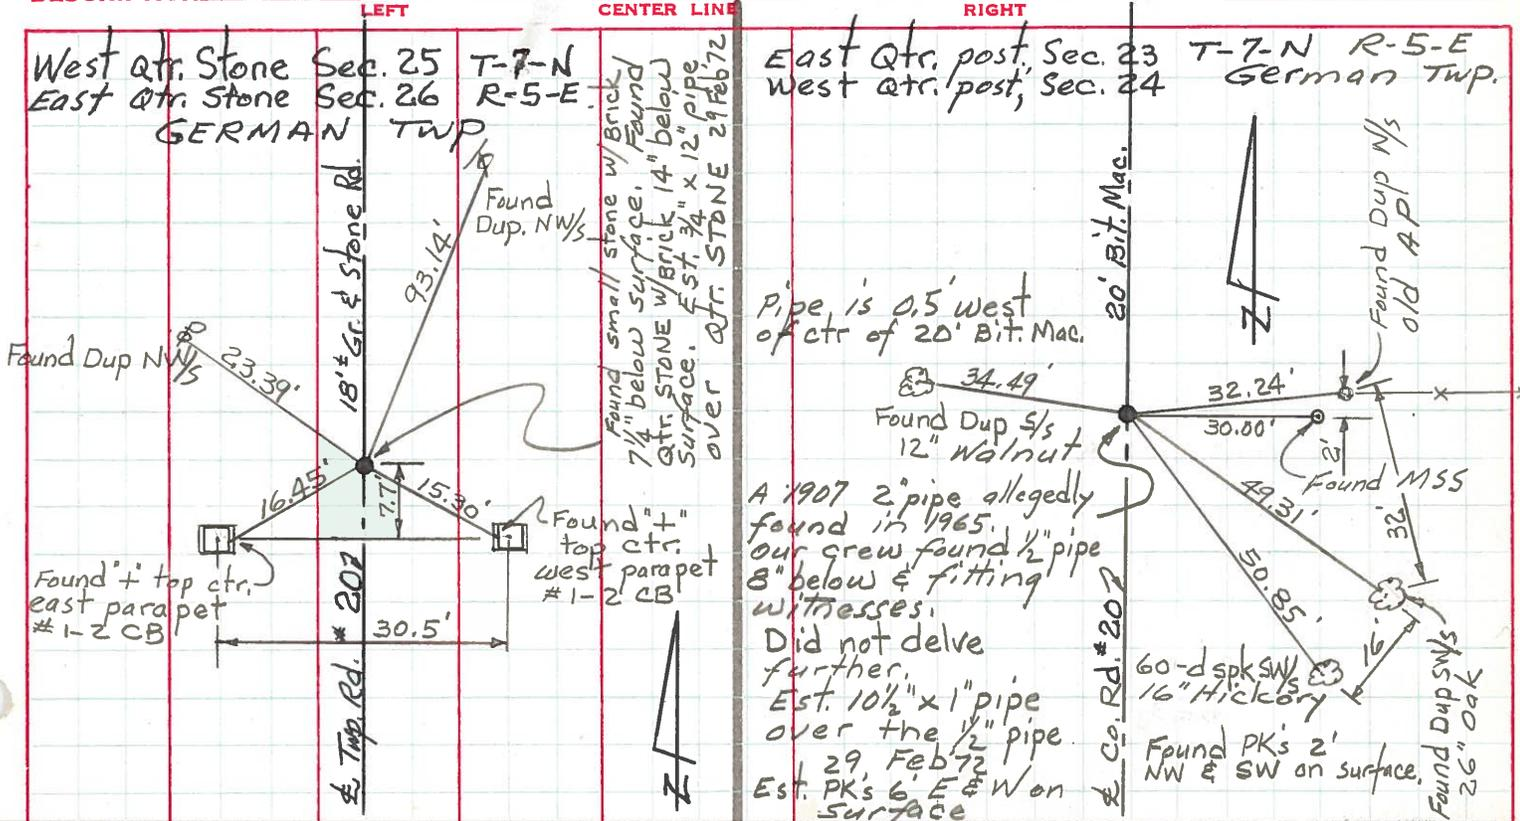 LEFT
CENTER LINE
RIGHT
West Qtr. Stone Sec. 25 T-7-N
East Qtr. Stone Sec. 26 R-5-E.
GERMAN TWP.
Found
Dup. NW/s
93.14'
18'± Gr. & Stone Rd.
Found Dup NW/s
23.39'
16.45'
7.7'
15.30'
Found "+" top ctr.
east parapet
# 1-2 CB
Found "+"
top ctr.
west parapet
# 1-2 CB
30.5'
℄ Twp. Rd. # 207
Found small stone w/ Brick
7 1/4" below surface. Found
Qtr. STONE w/Brick 14" below
surface. Est. 3/4" x 12" pipe
over Qtr. STONE 29 Feb'72
Z
East Qtr. post, Sec. 23 T-7-N R-5-E
West Qtr. post, Sec. 24 German Twp.
20' Bit. Mac.
Z
Found Dup N/s
old APl
Pipe is 0.5' west
of ctr of 20' Bit. Mac.
34.49'
Found Dup S/s
12" Walnut
32.24'
30.00'
2'
Found MSS
x
49.31'
32'
50.85'
16'
A 1907 2" pipe allegedly
found in 1965.
Our crew found 1/2" pipe
8" below & fitting
witnesses.
Did not delve
further.
Est. 10 1/2" x 1" pipe
over the 1/2" pipe
29 Feb'72
Est. PK's 6' E & W on
surface
℄ Co. Rd. # 207
60-d spk SW/s
16" Hickory
Found PK's 2'
NW & SW on surface.
Found Dup SW/s
26" Oak